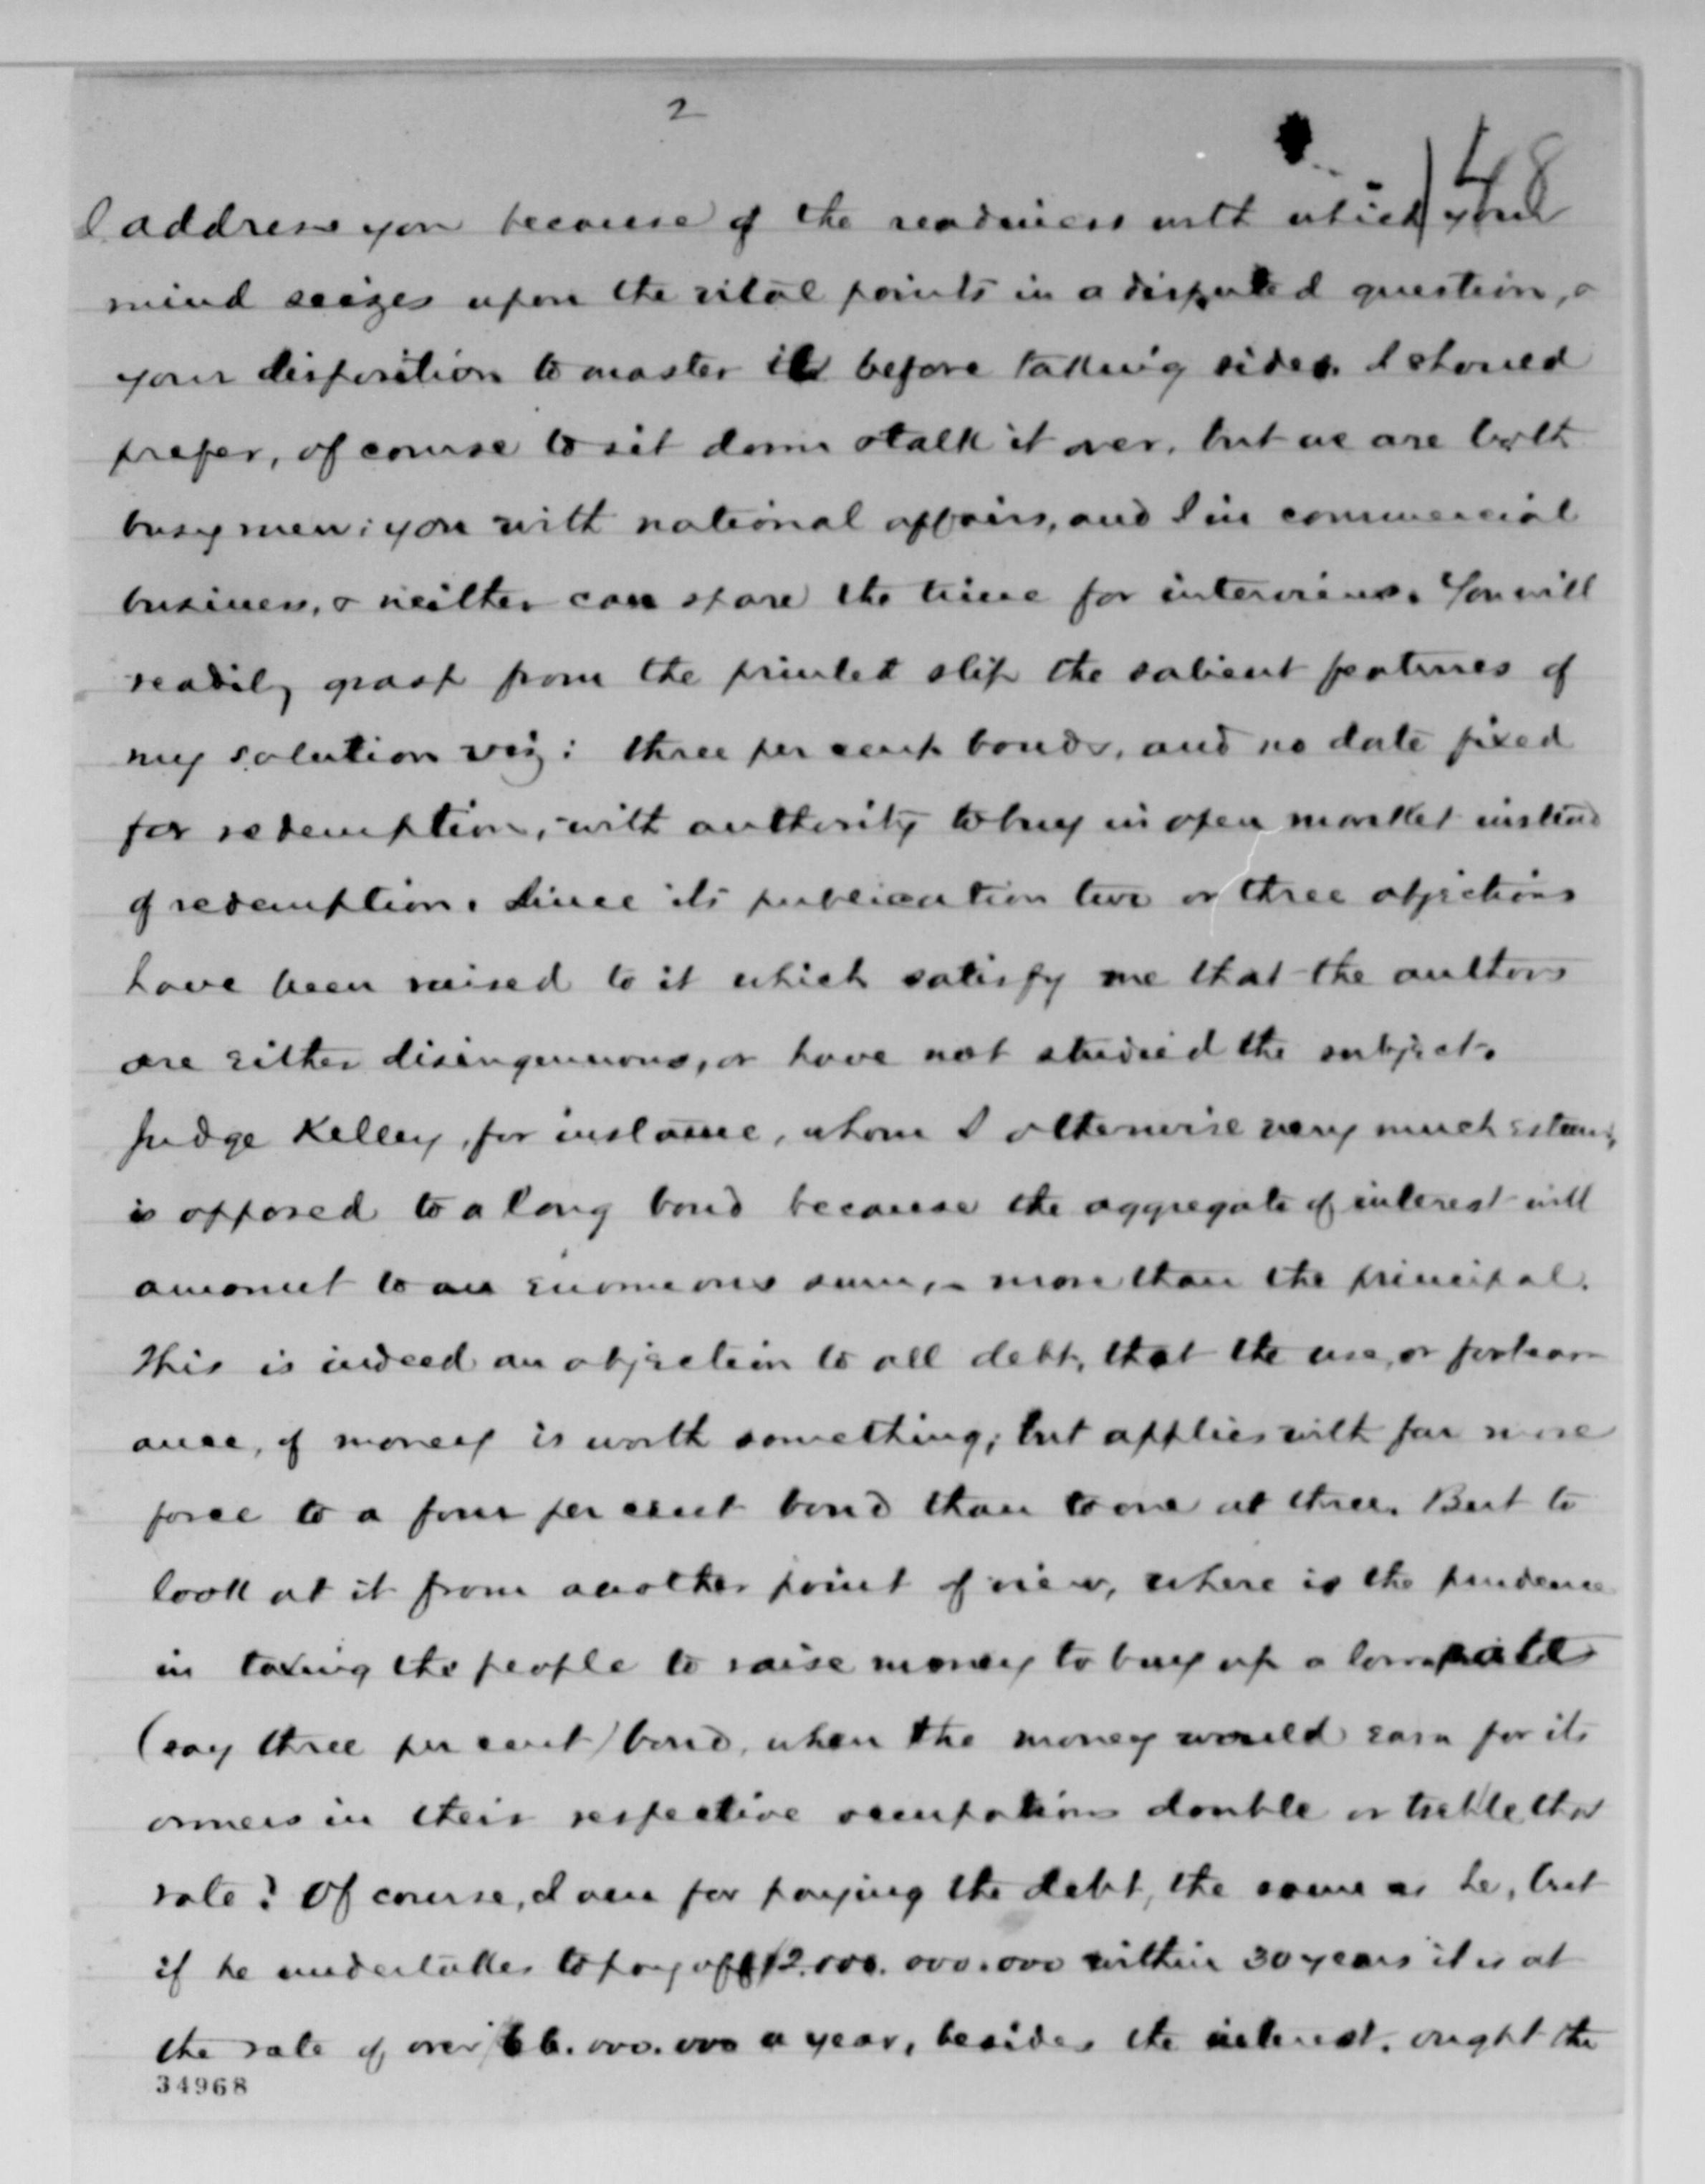 2
148
I address you because of the readiness with which your
mind seizes upon the vital points in a disputed question, &
your disposition to master it before taking sides. I should
prefer, of course to sit down & talk it over, but we are both
busy men: you with national affairs, and I in commercial
business, & neither can spare the time for interviews. You will
readily grasp from the printed slip the salient features of
my solution viz: three per cent bonds, and no date fixed
for redemption, with authority to buy in open market instead
of redemption. Since its publication two or three objections
have been raised to it which satisfy me that the authors
are either disingenuous, or have not studied the subject.
Judge Kelley, for instance, whom I otherwise very much esteem,
is opposed to a long bond because the aggregate of interest will
amount to an enormous sum, - more than the principal.
This is indeed an objection to all debt, that the use, or forbear-
ance, of money is worth something; but applies with far more
force to a four per cent bond than to one at three. But to
look at it from another point of view, where is the prudence
in taxing the people to raise money to buy up a low rate
(say three per cent) bond, when the money would earn for its
owners in their respective occupations double or treble that
rate? Of course, I am for paying the debt, the same as he, but
if he undertakes to pay off $2.000.000.000 within 30 years it is at
the rate of over $66.000.000 a year, besides the interest. ought the
34968